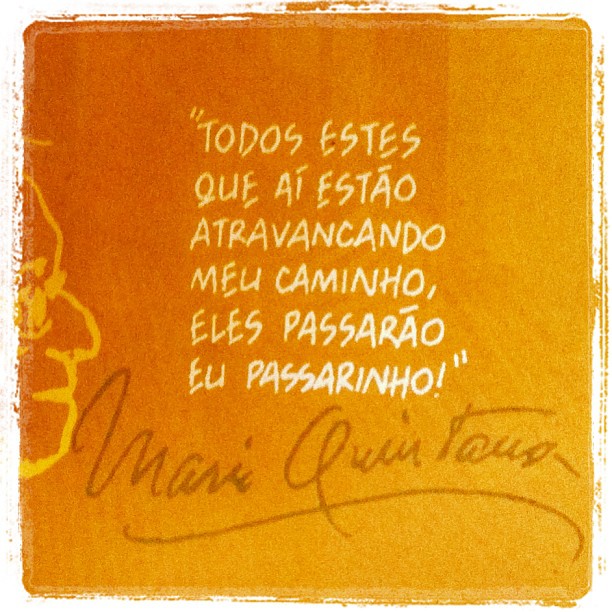 "TODOS ESTES
QUE AÍ ESTÃO
ATRAVANCANDO
MEU CAMINHO,
ELES PASSARÃO
EU PASSARINHO!"
Mario Quintana